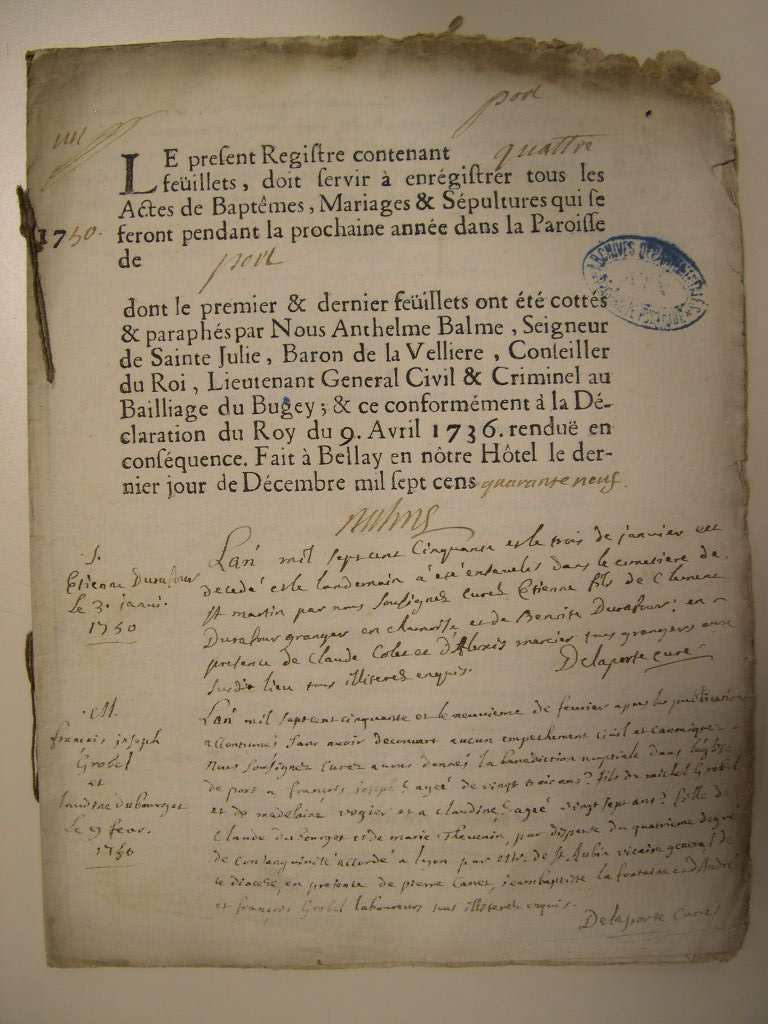 port
quattre
LE present Registre contenant
feüillets, doit servir à enrégistrer tous les
Actes de Baptêmes, Mariages & Sépultures qui se
1750. feront pendant la prochaine année dans la Paroisse
de port
ARCHIVES DEPARTEMENTALES
dont le premier & dernier feüillets ont été cottés
& paraphés par Nous Anthelme Balme, Seigneur
de Sainte Julie, Baron de la Velliere, Conseiller
du Roi, Lieutenant General Civil & Criminel au
Bailliage du Bugey; & ce conformément à la Dé-
claration du Roy du 9. Avril 1736. renduë en
conséquence. Fait à Bellay en nôtre Hôtel le der-
nier jour de Décembre mil sept cens quarante neuf.
.S.
Etienne Durafour
le 3. janvi.
1750
Lan mil sept cent Cinquante et le trois de janvier est
decedé et le landemain a eté enseveli dans le cimetiere de
st martin par nous soussignez curez Etienne fils de Clement
Durafour granger en chamoise et de Benoite Durafour: en
presence de Claude Colet et d'Alexis mercier tous grangers aux
susdit lieu tous illiterez enquis.
Delaporte curé
.M.
françois joseph
Grobel
et
Claudine dubourget
le 9 fevr.
1750
Lan mil sept cent cinquante et le neuvieme de fevrier apres les publications
accoutumés sans avoir decouvert aucun empechement civil et canonique
Nous soussignez curez avons donnés la benediction nuptiale dans leglise
de port a françois joseph agé de vingt trois ans fils de michel Grobel
et de madelaine vogier et a claudine agée vingt sept ans fille de
Claude du bourget et de marie Thevenin, par dispense du quatrieme degré
de consanguinité accordé a lyon par de St Aubin vicaire general de
ce diocese, en presence de pierre Canet, jean baptiste la fontaine et d'André
et françois Grobel laboureurs tous illiterez enquis.
Delaporte Curez